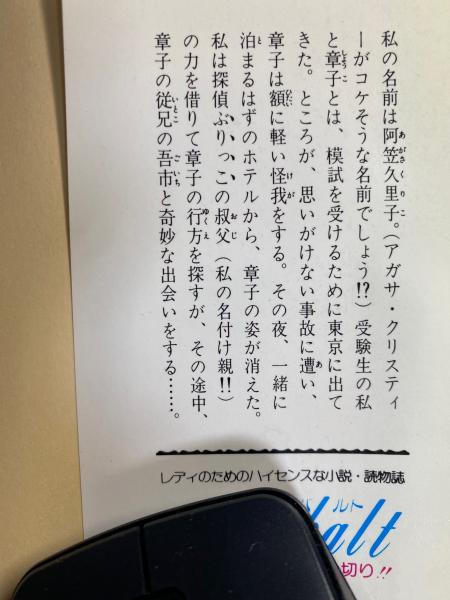 私の名前は阿笠久里子。(アガサ・クリスティ
ーがコケそうな名前でしょう!?)受験生の私
と章子とは、模試を受けるために東京に出て
きた。ところが、思いがけない事故に遭い、
章子は額に軽い怪我をする。その夜、一緒に
泊まるはずのホテルから、章子の姿が消えた。
私は探偵ぶりっこの叔父(私の名付け親!!)
の力を借りて章子の行方を探すが、その途中、
章子の従兄の吾市と奇妙な出会いをする……。
レディのためのハイセンスな小説・読物誌
バルト
alt
切り!!